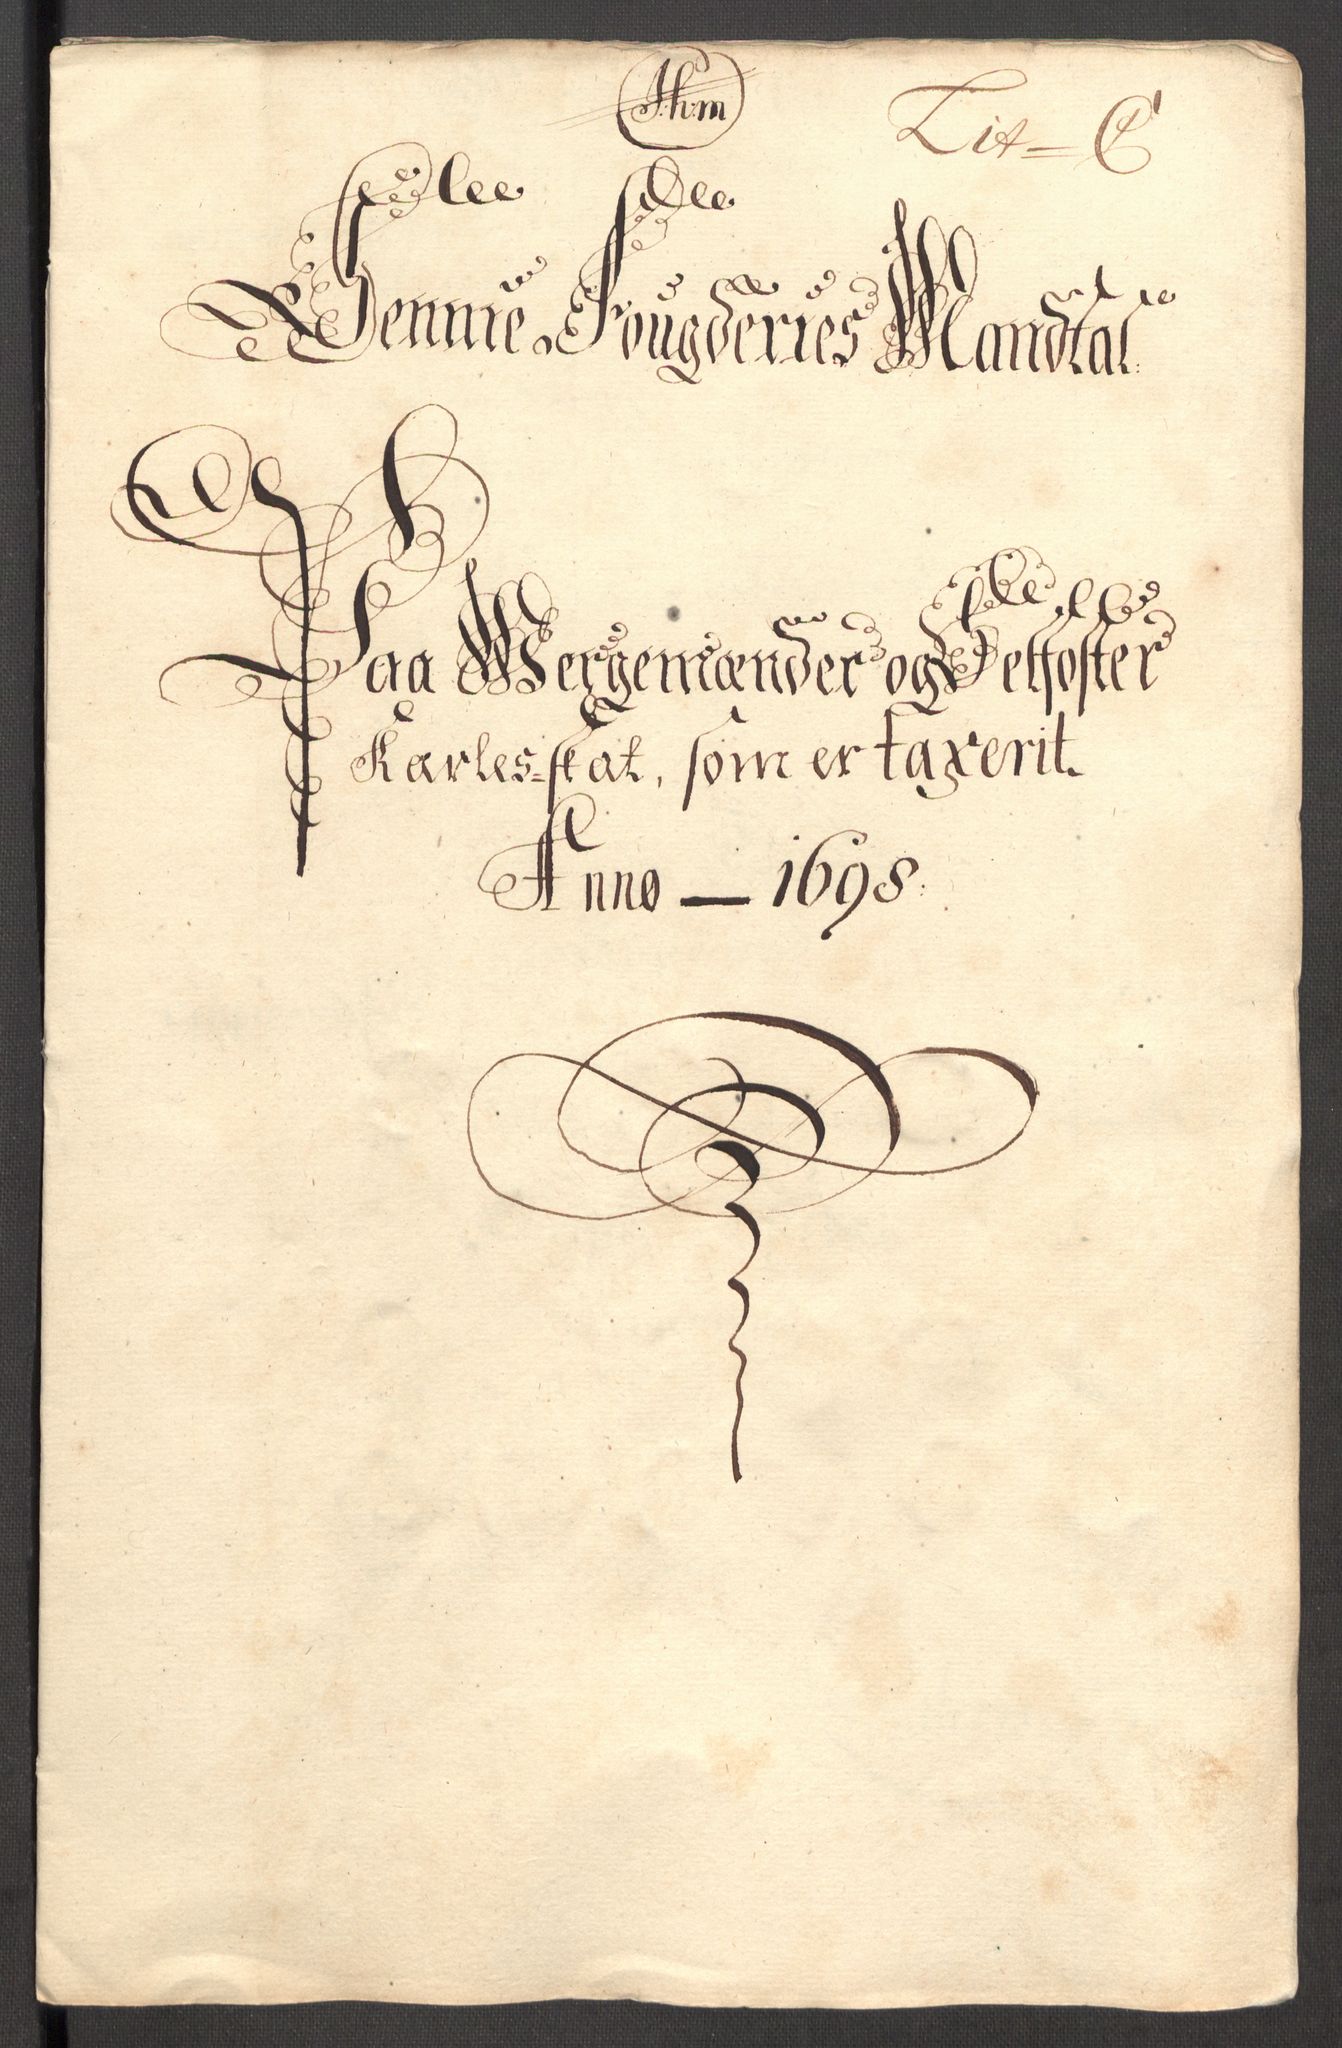 Lit = C
Sennie Fougderies Mandtal.
Paa Wergemænder og Selfoster
Karles-skat, som er taxerit.
Anno — 1698.